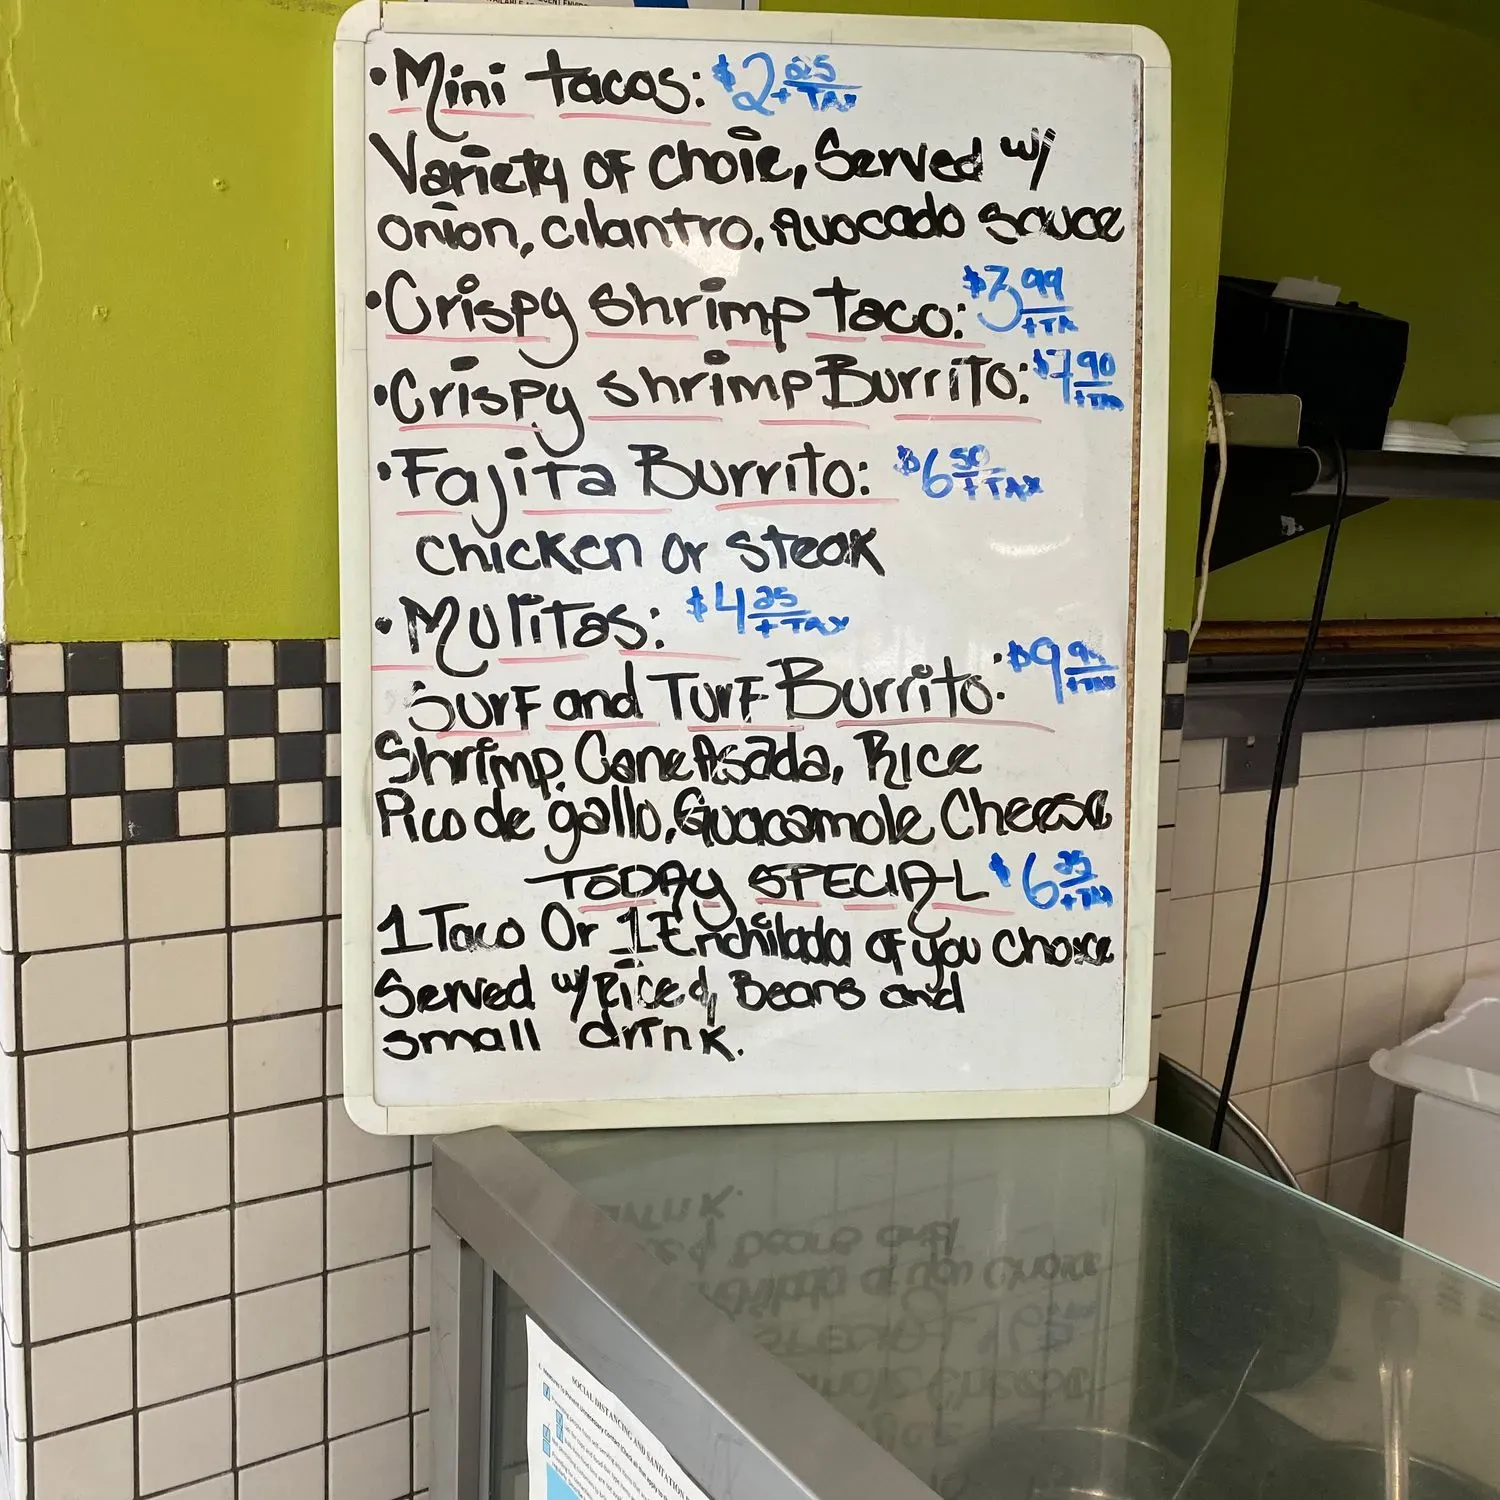 • Mini tacos: $2.25 + TAX
Variety OF choie, Served w/
onion, cilantro, Avocado sauce
• Crispy shrimp taco: $3.99 + TX
• Crispy shrimp Burrito: $7.90 + TAX
• Fajita Burrito: $6.50 + TAX
chicken or steak
• Mulitas: $4.25 + TAX
Surf and Turf Burrito: $9.95 + TAX
Shrimp, CaneAsada, Rice
Pico de gallo, Guacamole Cheese
TODAY SPECIAL $6.25 + TAX
1 Taco Or 1 Enchilada of you choice
Served w/ Rice & Beans and
small drink.
SOCIAL DISTANCING AND